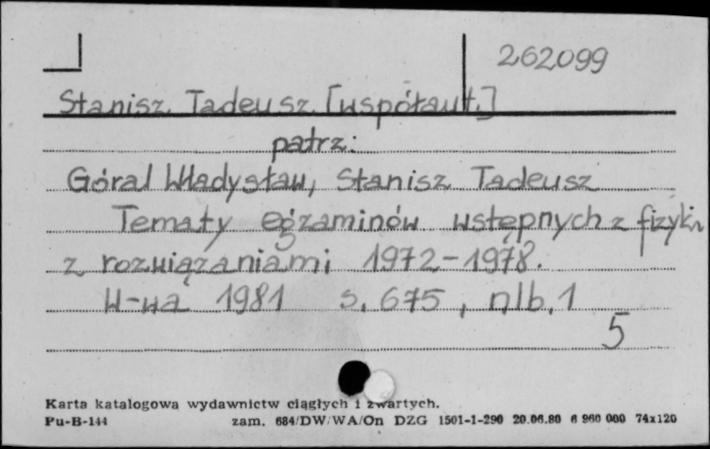 262099
Stanisz Tadeusz [współaut.]
patrz:
Góral Władysław, Stanisz Tadeusz
Tematy egzaminów wstępnych z fizyki
z rozwiązaniami 1972-1978.
W-wa 1981 s. 675, nlb. 1
5
Karta katalogowa wydawnictw ciągłych i zwartych.
Pu-B-144 zam. 684/DW/WA/On DZG 1501-1-290 20.06.80 6 960 000 74x120